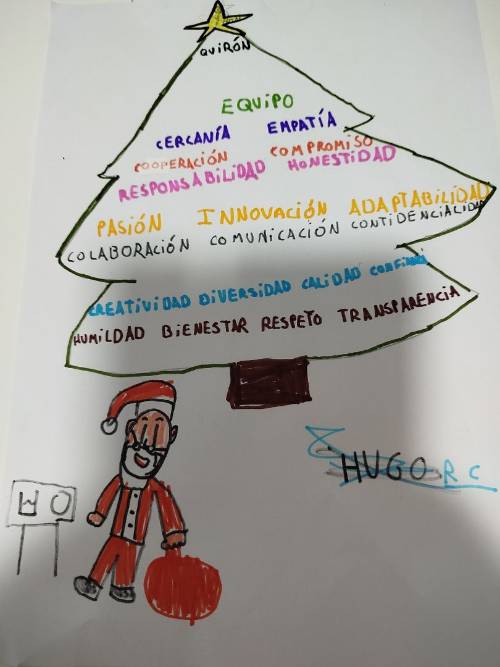 QUIRÓN
EQUIPO
CERCANÍA EMPATÍA
COOPERACIÓN COMPROMISO
RESPONSABILIDAD HONESTIDAD
PASIÓN INNOVACIÓN ADAPTABILIDAD
COLABORACIÓN COMUNICACIÓN CONTIDENCIALIDAD
CREATIVIDAD DIVERSIDAD CALIDAD CONFIANZA
HUMILDAD BIENESTAR RESPETO TRANSPARENCIA
HUGO RC
WO